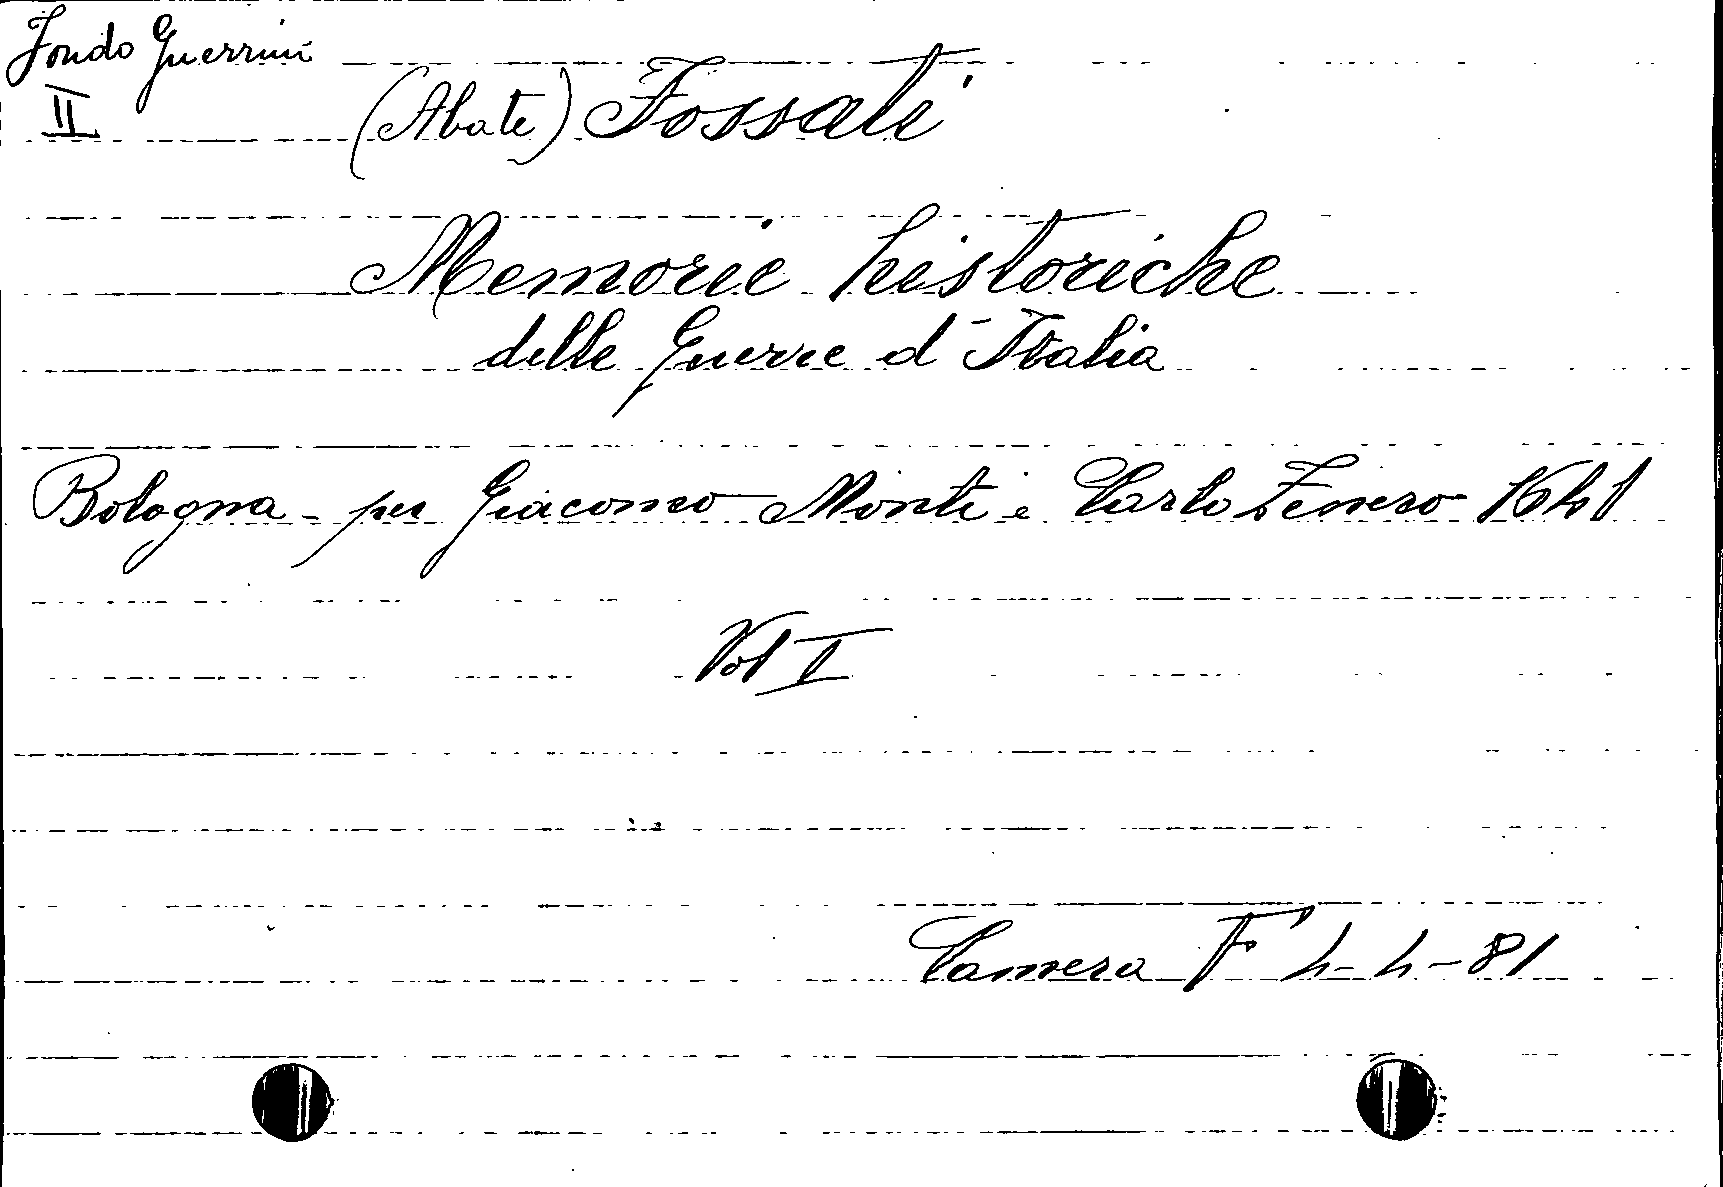 Fondo Guerrini
II
(Abate) Fossati
Memorie historiche
delle Guerre d'Italia
Bologna - per Giacomo Monti e Carlo Zenero 1641
Vol I
Camera F 4-4-81